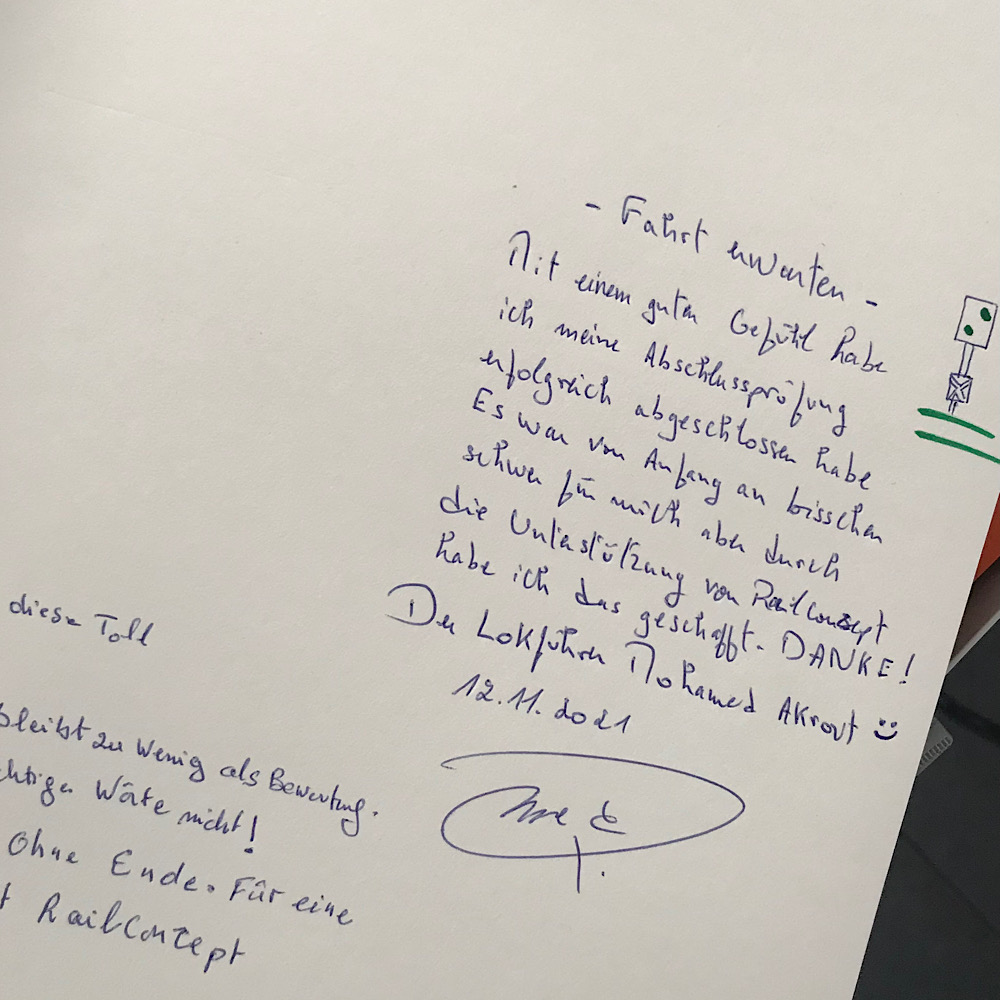 - Fahrt erwarten -
Mit einem guten Gefühl habe
ich meine Abschlussprüfung
erfolgreich abgeschlossen habe
Es war von Anfang an bisschen
schwer für mich aber durch
die Unterstützung von RailConzept
habe ich das geschafft. DANKE!
Der Lokführer Mohamed AKrout
12.11.2021
diese Toll
bleibt zu Wenig als Bewertung.
Wörte nicht!
Ohne Ende. Für eine
RailConzept